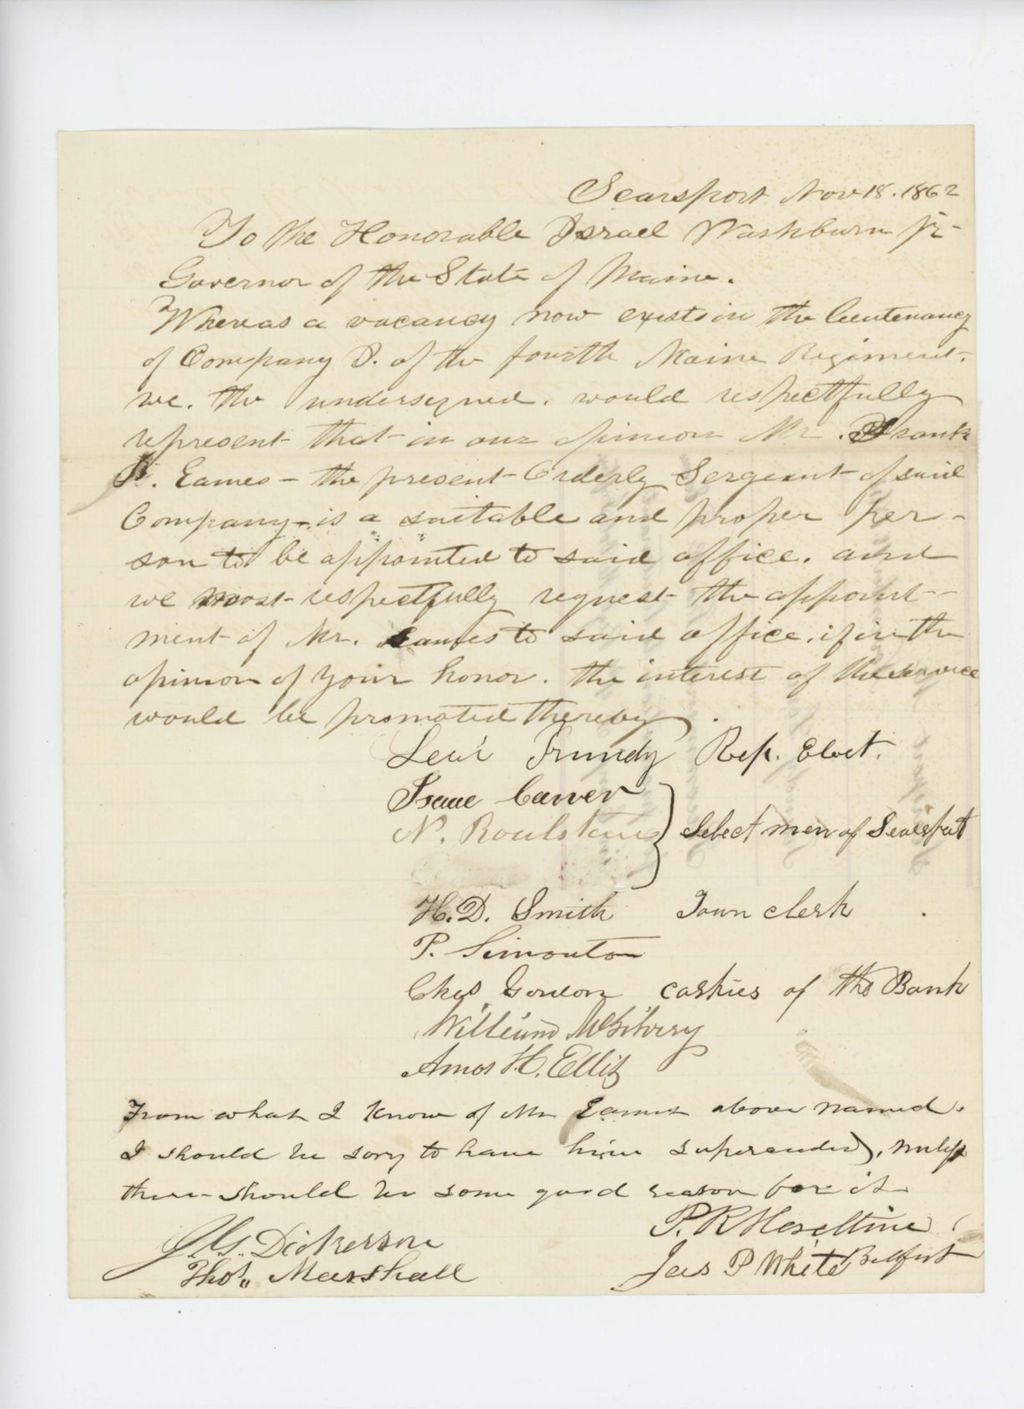 Searsport Nov 18. 1862
To the Honorable Israel Washburn Jr
Governor of the State of Maine.
Whereas a vacancy now exists in the lieutenancy
of Company D. of the fourth Maine Regiment.
we. the undersigned. would respectfully
represent that in our opinion Mr. Frank
Eames – the present Orderly Sergeant of said
Company – is a suitable and proper per-
son to be appointed to said office. and
we most respectfully request the appoint-
ment of Mr. Eames to said office. if in the
opinion of your honor. the interest of the service
would be promoted thereby.
Levi Trundy Rep. Elect.
Isaac Carver
N. Roulstone Select men of Searsport
H. D. Smith Town clerk
P. Simonton
Chas Gordon cashier of the Bank
William McGilvery
Amos H. Ellis
From what I know of Mr Eames above named.
I should be sorry to have him superceded, unless
there should be some good reason for it
P. R. Hazeltine
J. G. Dickerson
Jas P White Belfast
Thos. Marshall